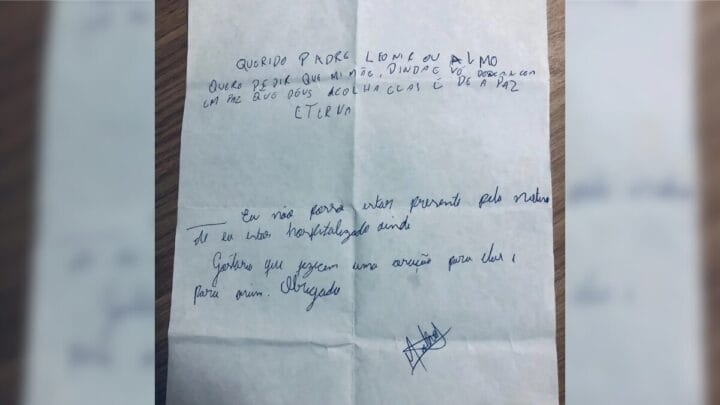 QUERIDO PADRE LEONIR OU ALMO
QUERO PEDIR QUE MI MÃE, DINDA E VÓ DESCANCEM
EM PAZ QUE DEUS ACOLHA ELAS E DE A PAZ
ETERNA
Eu não posso estar presente pelo motivo
de eu estar hospitalizado ainda
Gostaria que fizecem uma oração para elas e
para mim. Obrigado